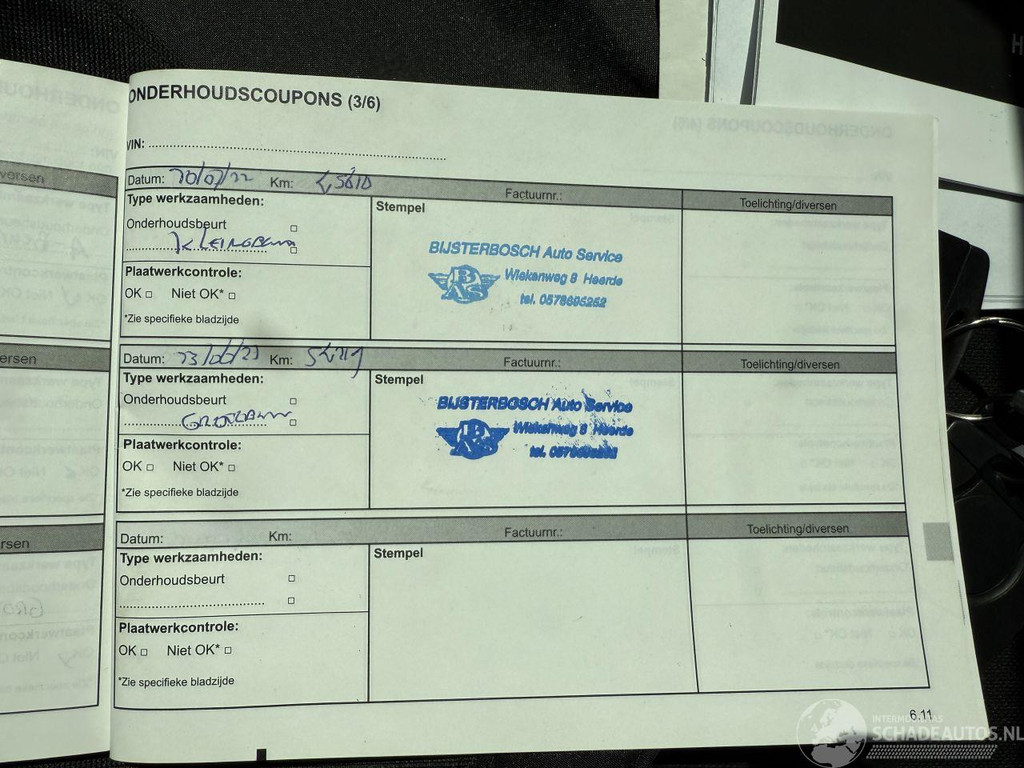 ONDERHOUDSCOUPONS (3/6)
VIN:
Datum: Km: Factuurnr.: Toelichting/diversen
Type werkzaamheden: Stempel
Onderhoudsbeurt
BIJSTERBOSCH Auto Service
Wiekenweg 8 Heerde
BAS
tel. 0578695252
Plaatwerkcontrole:
OK Niet OK*
*Zie specifieke bladzijde
Datum: 23/06/23 Km: Factuurnr.: Toelichting/diversen
Type werkzaamheden: Stempel
Onderhoudsbeurt
BIJSTERBOSCH Auto Service
Wiekenweg 8 Heerde
BAS
tel.
Plaatwerkcontrole:
OK Niet OK*
*Zie specifieke bladzijde
Datum: Km: Factuurnr.: Toelichting/diversen
Type werkzaamheden: Stempel
Onderhoudsbeurt
Plaatwerkcontrole:
OK Niet OK*
*Zie specifieke bladzijde
6.11
SCHADEAUTOS.NL